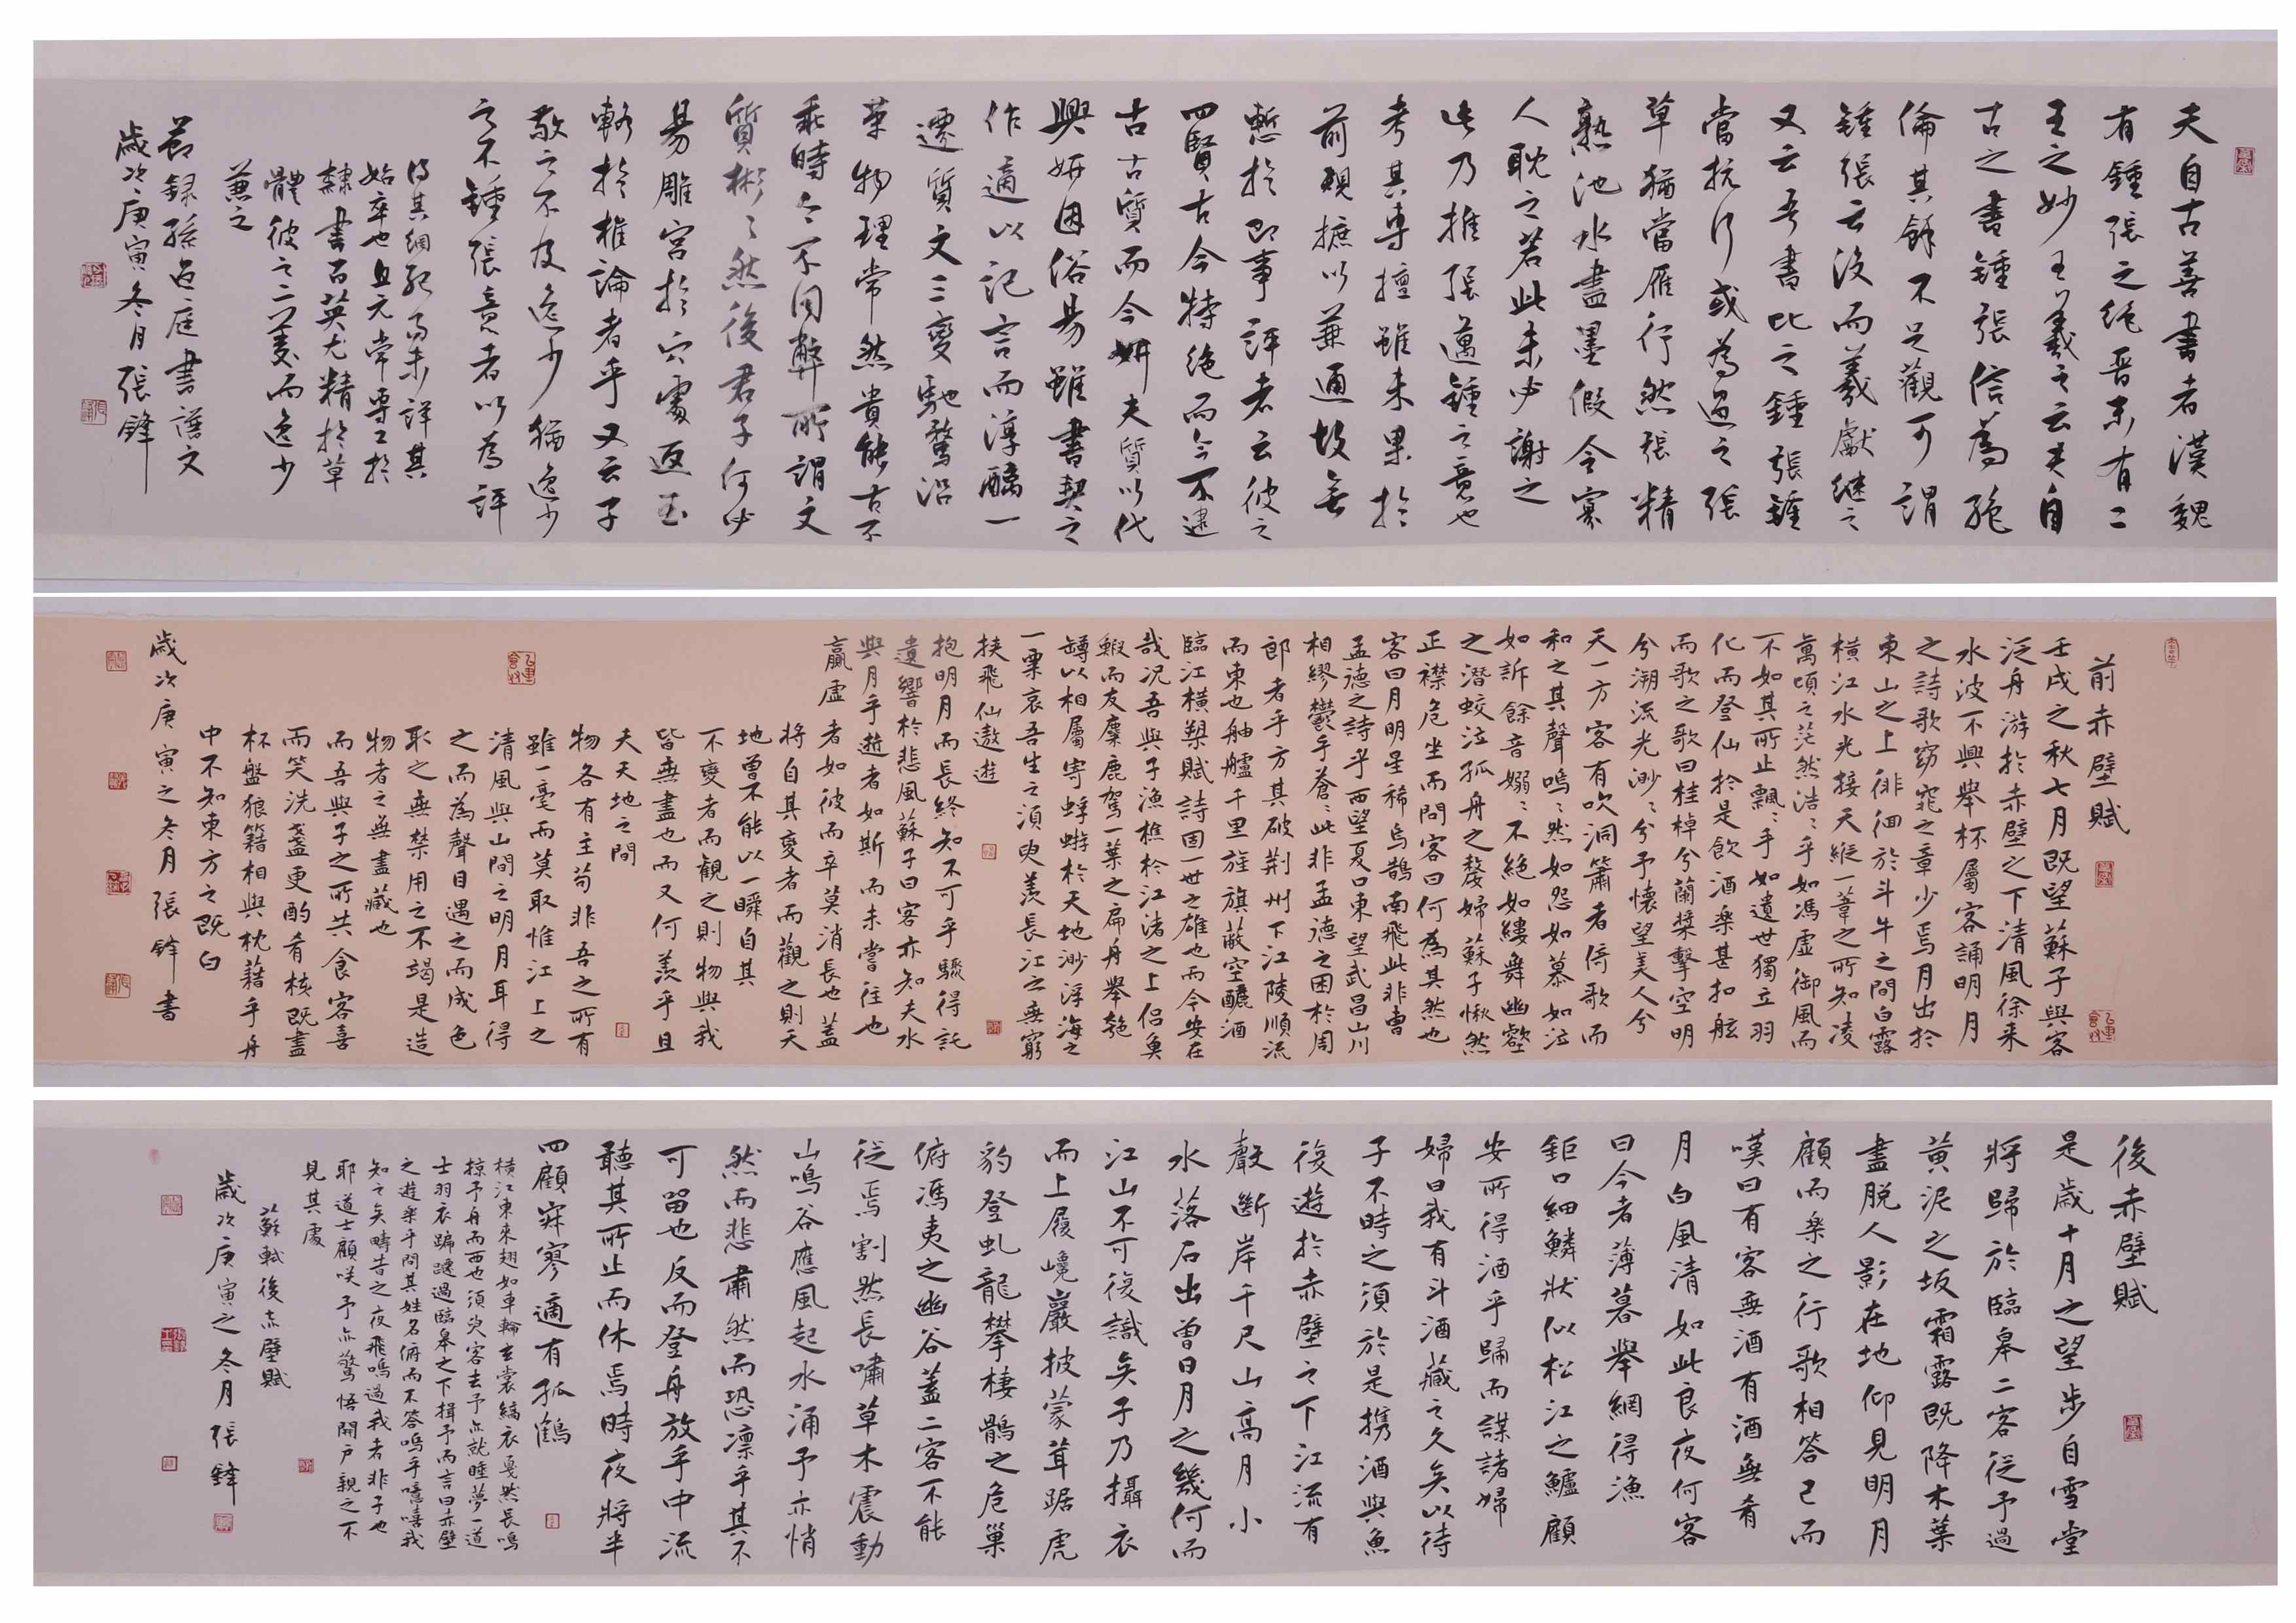 夫自古善書者漢魏
有鍾張之絕晉末有二
王之妙王羲之云夫自
古之書鍾張信為絕
倫其餘不足觀可謂
鍾張云沒而羲獻繼之
又云吾書比之鍾張鍾
當抗行或為過之張
草猶當雁行然張精
熟池水盡墨假令寡
人耽之若此未必謝之
此乃推張邁鍾之意也
考其專擅雖未果於
前規摭以兼通故無
慙於即事評者云彼之
四賢古今特絕而今不逮
古古質而今妍夫質以代
興妍因俗易雖書契之
作適以記言而淳醨一
遷質文三變馳騖沿
革物理常然貴能古不
乖時今不同弊所謂文
質彬彬然後君子何必
易雕宮於穴處返玉
輅於椎論者乎又云子
敬之不及逸少猶逸少
之不鍾張意者以為評
得其綱紀而未詳其
始卒也且元常專工於
隸書百英尤精於草
體彼之二美而逸少
兼之
節録孫過庭書譜文
歲次庚寅冬月張鋒
前赤壁賦
壬戌之秋七月既望蘇子與客
泛舟游於赤壁之下清風徐来
水波不興舉杯屬客誦明月
之詩歌窈窕之章少焉月出於
東山之上徘徊於斗牛之間白露
橫江水光接天縱一葦之所知凌
萬頃之茫然浩浩乎如馮虛御風而
不如其所止飄飄乎如遺世獨立羽
化而登仙於是飲酒樂甚扣舷
而歌之歌曰桂棹兮蘭槳擊空明
兮溯流光渺渺兮予懷望美人兮
天一方客有吹洞簫者倚歌而
和之其聲嗚嗚然如怨如慕如泣
如訴餘音嫋嫋不絕如縷舞幽壑
之潛蛟泣孤舟之嫠婦蘇子愀然
正襟危坐而問客曰何為其然也
客曰月明星稀烏鵲南飛此非曹
孟德之詩乎西望夏口東望武昌山川
相繆鬱乎蒼蒼此非孟德之困於周
郎者乎方其破荆州下江陵順流
而東也舳艫千里旌旗蔽空釃酒
臨江橫槊賦詩固一世之雄也而今安在
哉況吾與子漁樵於江渚之上侶魚
鰕而友麋鹿駕一葉之扁舟舉匏
罇以相屬寄蜉蝣於天地渺浮海之
一粟哀吾生之須臾羨長江之無窮
挾飛仙遨遊
抱明月而長終知不可乎驟得託
遺響於悲風蘇子曰客亦知夫水
與月乎逝者如斯而未嘗往也
贏虛者如彼而卒莫消長也蓋
將自其變者而觀之則天
地曾不能以一瞬自其
不變者而觀之則物與我
皆無盡也而又何羨乎且
夫天地之間
物各有主苟非吾之所有
雖一毫而莫取惟江上之
清風與山間之明月耳得
之而為聲目遇之而成色
取之無禁用之不竭是造
物者之無盡藏也
而吾與子之所共食客喜
而笑洗盞更酌肴核既盡
杯盤狼籍相與枕藉乎舟
中不知東方之既白
歲次庚寅之冬月張鋒書
後赤壁賦
是歲十月之望步自雪堂
將歸於臨皋二客從予過
黃泥之坂霜露既降木葉
盡脱人影在地仰見明月
顧而樂之行歌相答已而
嘆曰有客無酒有酒無肴
月白風清如此良夜何客
曰今者薄暮舉網得漁
鉅口細鱗狀似松江之鱸顧
安所得酒乎歸而謀諸婦
婦曰我有斗酒藏之久矣以待
子不時之須於是携酒與魚
復遊於赤壁之下江流有
聲斷岸千尺山高月小
水落石出曾日月之幾何而
江山不可復識矣予乃攝衣
而上履巉巖披蒙茸踞虎
豹登虬龍攀棲鶻之危巢
俯馮夷之幽谷蓋二客不能
從焉割然長嘯草木震動
山鳴谷應風起水涌予亦悄
然而悲肅然而恐凛乎其不
可留也反而登舟放乎中流
聽其所止而休焉時夜將半
四顧寂寥適有孤鶴
橫江東来翅如車輪玄裳縞衣戛然長鳴
掠予舟而西也須臾客去予亦就睡夢一道
士羽衣蹁躚過臨皋之下揖予而言曰赤壁
之遊樂乎問其姓名俯而不答嗚乎噫嘻我
知之矣疇昔之夜飛鳴過我者非子也
耶道士顧咲予亦驚悟開户親之不
見其處
蘇軾後赤壁賦
歲次庚寅之冬月張鋒